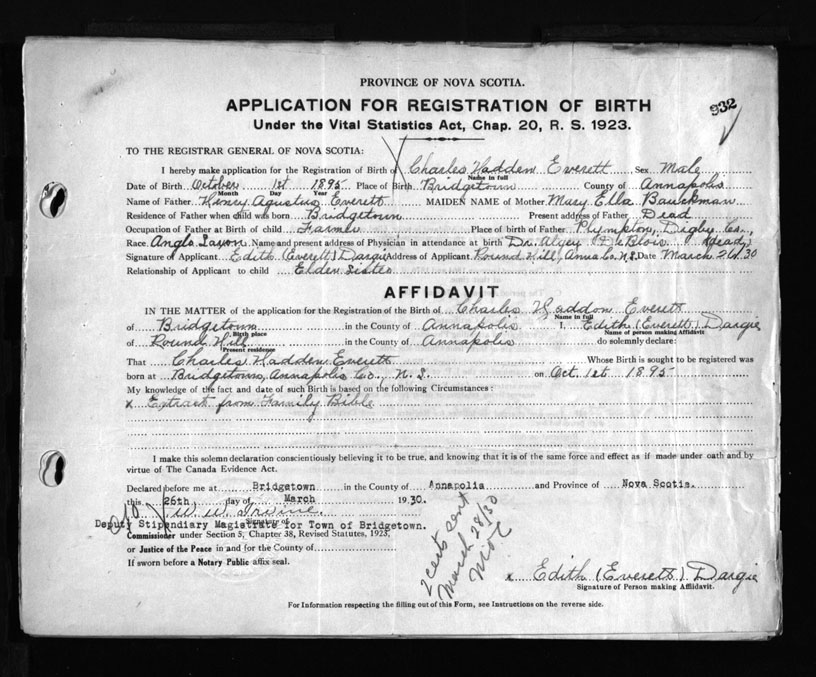 PROVINCE OF NOVA SCOTIA.
APPLICATION FOR REGISTRATION OF BIRTH
932
Under the Vital Statistics Act, Chap. 20, R. S. 1923.
TO THE REGISTRAR GENERAL OF NOVA SCOTIA:
I hereby make application for the Registration of Birth of Charles Hadden Everett Sex Male
Name in full
Date of Birth October 1st 1895 Place of Birth Bridgetown County of Annapolis
Month Day Year
Name of Father Henry Agustus Everett MAIDEN NAME of Mother Mary Ella Bauckman
Residence of Father when child was born Bridgetown Present address of Father Dead
Occupation of Father at Birth of child Farmer Place of birth of Father Plympton, Digby Co.,
Race Anglo Saxon Name and present address of Physician in attendance at birth Dr. DeBlois (dead)
Signature of Applicant Edith (Everett) Dargie Address of Applicant Round Hill, Anna Co. N.S. Date March 26/30
Relationship of Applicant to child Elder Sister
AFFIDAVIT
IN THE MATTER of the application for the Registration of the Birth of Charles Haddon Everett
Name in full
of Bridgetown in the County of Annapolis I, Edith (Everett) Dargie
Birth place Name of person making Affidavit
of Round Hill in the County of Annapolis do solemnly declare:
Present residence
That Charles Hadden Everett Whose Birth is sought to be registered was
born at Bridgetown, Annapolis Co., N.S. on Oct 1st 1895
My knowledge of the fact and date of such Birth is based on the following Circumstances:
x Extract from Family Bible
I make this solemn declaration conscientiously believing it to be true, and knowing that it is of the same force and effect as if made under oath and by
virtue of The Canada Evidence Act.
Declared before me at Bridgetown in the County of Annapolis and Province of Nova Scotia.
this 26th day of March 1930.
W. W. Irvine
Signature of
Deputy Stipendiary Magistrate for Town of Bridgetown.
Commissioner under Section 5, Chapter 38, Revised Statutes, 1923,
or Justice of the Peace in and for the County of
If sworn before a Notary Public affix seal.
2 certs sent
March 28/30
x Edith (Everett) Dargie
Signature of Person making Affidavit.
For Information respecting the filling out of this Form, see Instructions on the reverse side.